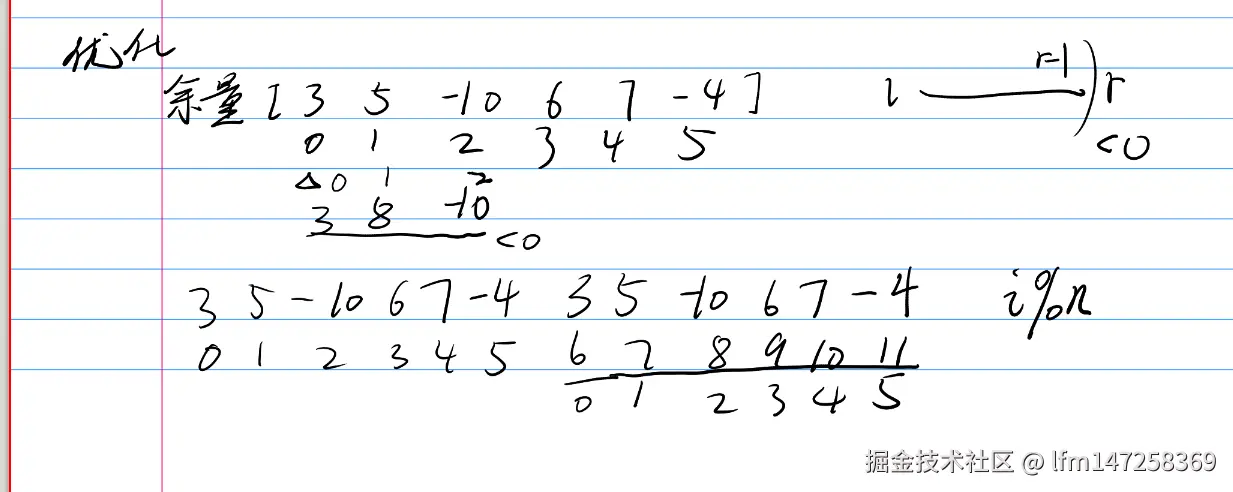 优化
余量 [ 3 5 -10 6 7 -4 ] l r-1 ) r
0 1 2 3 4 5 <0
△ 0 1 2
3 8 -10
<0
3 5 -10 6 7 -4 3 5 -10 6 7 -4 i%n
0 1 2 3 4 5 6 7 8 9 10 11
0 1 2 3 4 5
掘金技术社区 @ lfm147258369